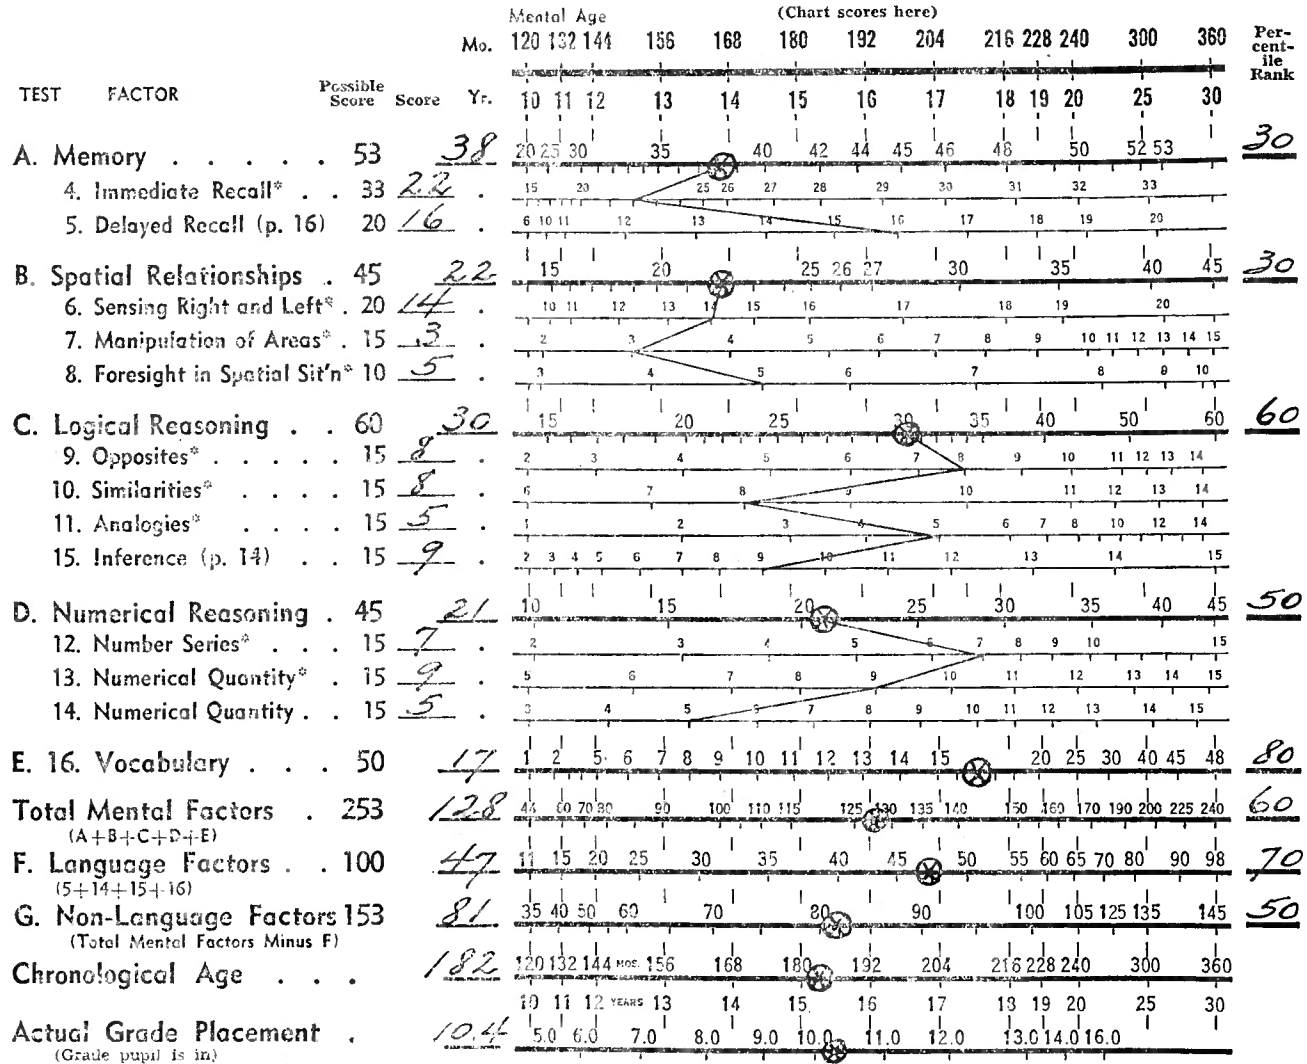 Mental Age (Chart scores here)
Mo. 120 132 144 156 168 180 192 204 216 228 240 300 360 Per-
cent-
ile
Rank
TEST FACTOR Possible
Score Score Yr. 10 11 12 13 14 15 16 17 18 19 20 25 30
A. Memory . . . . . 53 38 20 25 30 35 40 42 44 45 46 48 50 52 53 30
4. Immediate Recall* . . 33 22 . 15 20 25 26 27 28 29 30 31 32 33
5. Delayed Recall (p. 16) 20 16 . 6 10 11 12 13 14 15 16 17 18 19 20
B. Spatial Relationships . 45 22 15 20 25 26 27 30 35 40 45 30
6. Sensing Right and Left* . 20 14 . 10 11 12 13 14 15 16 17 18 19 20
7. Manipulation of Areas* . 15 3 . 2 3 4 5 6 7 8 9 10 11 12 13 14 15
8. Foresight in Spatial Sit'n* 10 5 . 3 4 5 6 7 8 9 10
C. Logical Reasoning . . 60 30 15 20 25 30 35 40 50 60 60
9. Opposites* . . . . . 15 8 . 2 3 4 5 6 7 8 9 10 11 12 13 14
10. Similarities* . . . . 15 8 . 6 7 8 9 10 11 12 13 14
11. Analogies* . . . . 15 5 . 1 2 3 4 5 6 7 8 10 12 14
15. Inference (p. 14) . . 15 9 . 2 3 4 5 6 7 8 9 10 11 12 13 14 15
D. Numerical Reasoning . 45 21 10 15 20 25 30 35 40 45 50
12. Number Series* . . . 15 7 . 2 3 4 5 6 7 8 9 10 15
13. Numerical Quantity* . 15 9 . 5 6 7 8 9 10 11 12 13 14 15
14. Numerical Quantity . . 15 5 . 3 4 5 6 7 8 9 10 11 12 13 14 15
E. 16. Vocabulary . . . 50 17 1 2 5 6 7 8 9 10 11 12 13 14 15 20 25 30 40 45 48 80
Total Mental Factors . 253 128 44 60 70 80 90 100 110 115 125 130 135 140 150 160 170 190 200 225 240 60
(A+B+C+D+E)
F. Language Factors . . 100 47 11 15 20 25 30 35 40 45 50 55 60 65 70 80 90 98 70
(5+14+15+16)
G. Non-Language Factors 153 81 35 40 50 60 70 80 90 100 105 125 135 145 50
(Total Mental Factors Minus F)
Chronological Age . . . 182 120 132 144 MOS. 156 168 180 192 204 216 228 240 300 360
10 11 12 YEARS 13 14 15 16 17 18 19 20 25 30
Actual Grade Placement . 10.4 5.0 6.0 7.0 8.0 9.0 10.0 11.0 12.0 13.0 14.0 16.0
(Grade pupil is in)